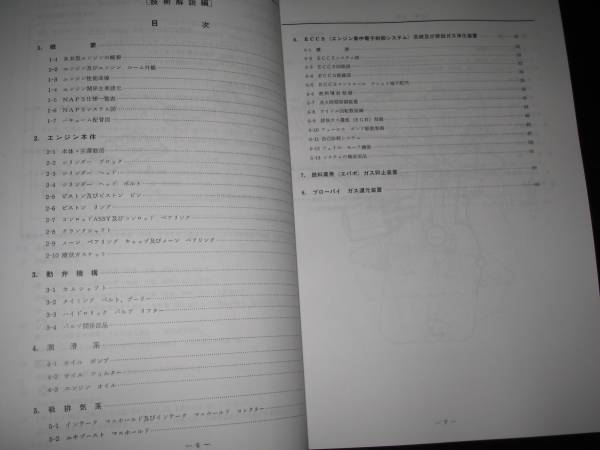 [技術解説編]
目 次
1. 概 要
1-2 エンジン及びエンジン ルーム外観
1-3 エンジン性能曲線
1-4 エンジン関係主要諸元
1-5 NAPS仕様一覧表
1-6 NAPSシステム図
1-7 バキューム配管図
2. エンジン本体
2-1 本体・主運動部
2-2 シリンダー ブロック
2-3 シリンダー ヘッド
2-4 シリンダー ヘッド ボルト
2-5 ピストン及びピストン ピン
2-6 ピストン リング
2-7 コンロッドASSY及びコンロッド ベアリング
2-8 クランクシャフト
2-9 メーン ベアリング キャップ及びメーン ベアリング
2-10 液状ガスケット
3. 動弁機構
3-1 カムシャフト
3-2 タイミング ベルト、プーリー
3-3 ハイドロリック バルブ リフター
3-4 バルブ関係部品
4. 潤滑系
4-1 オイル ポンプ
4-2 オイル フィルター
4-3 エンジン オイル
5. 吸排気系
5-1 インテーク マニホールド及びインテーク マニホールド コレクター
5-2 エキゾースト マニホールド
— 6 —
6. ECCS(エンジン集中電子制御システム)系統及び排出ガス浄化装置
6-1 概 要
6-2 ECCSシステム図
6-3 ECCS回路図
6-4 ECCS部品図
6-5 ECCSコントロール ユニット端子配列
6-6 燃料噴射制御
6-7 点火時期制御装置
6-8 アイドル回転数制御
6-9 排気ガス還流(EGR)制御
6-10 フューエル ポンプ駆動制御
6-11 自己診断システム
6-12 フェイル セーフ機能
6-13 システムの構成部品
7. 燃料蒸発(エバポ)ガス抑止装置
8. ブローバイ ガス還元装置
— 7 —